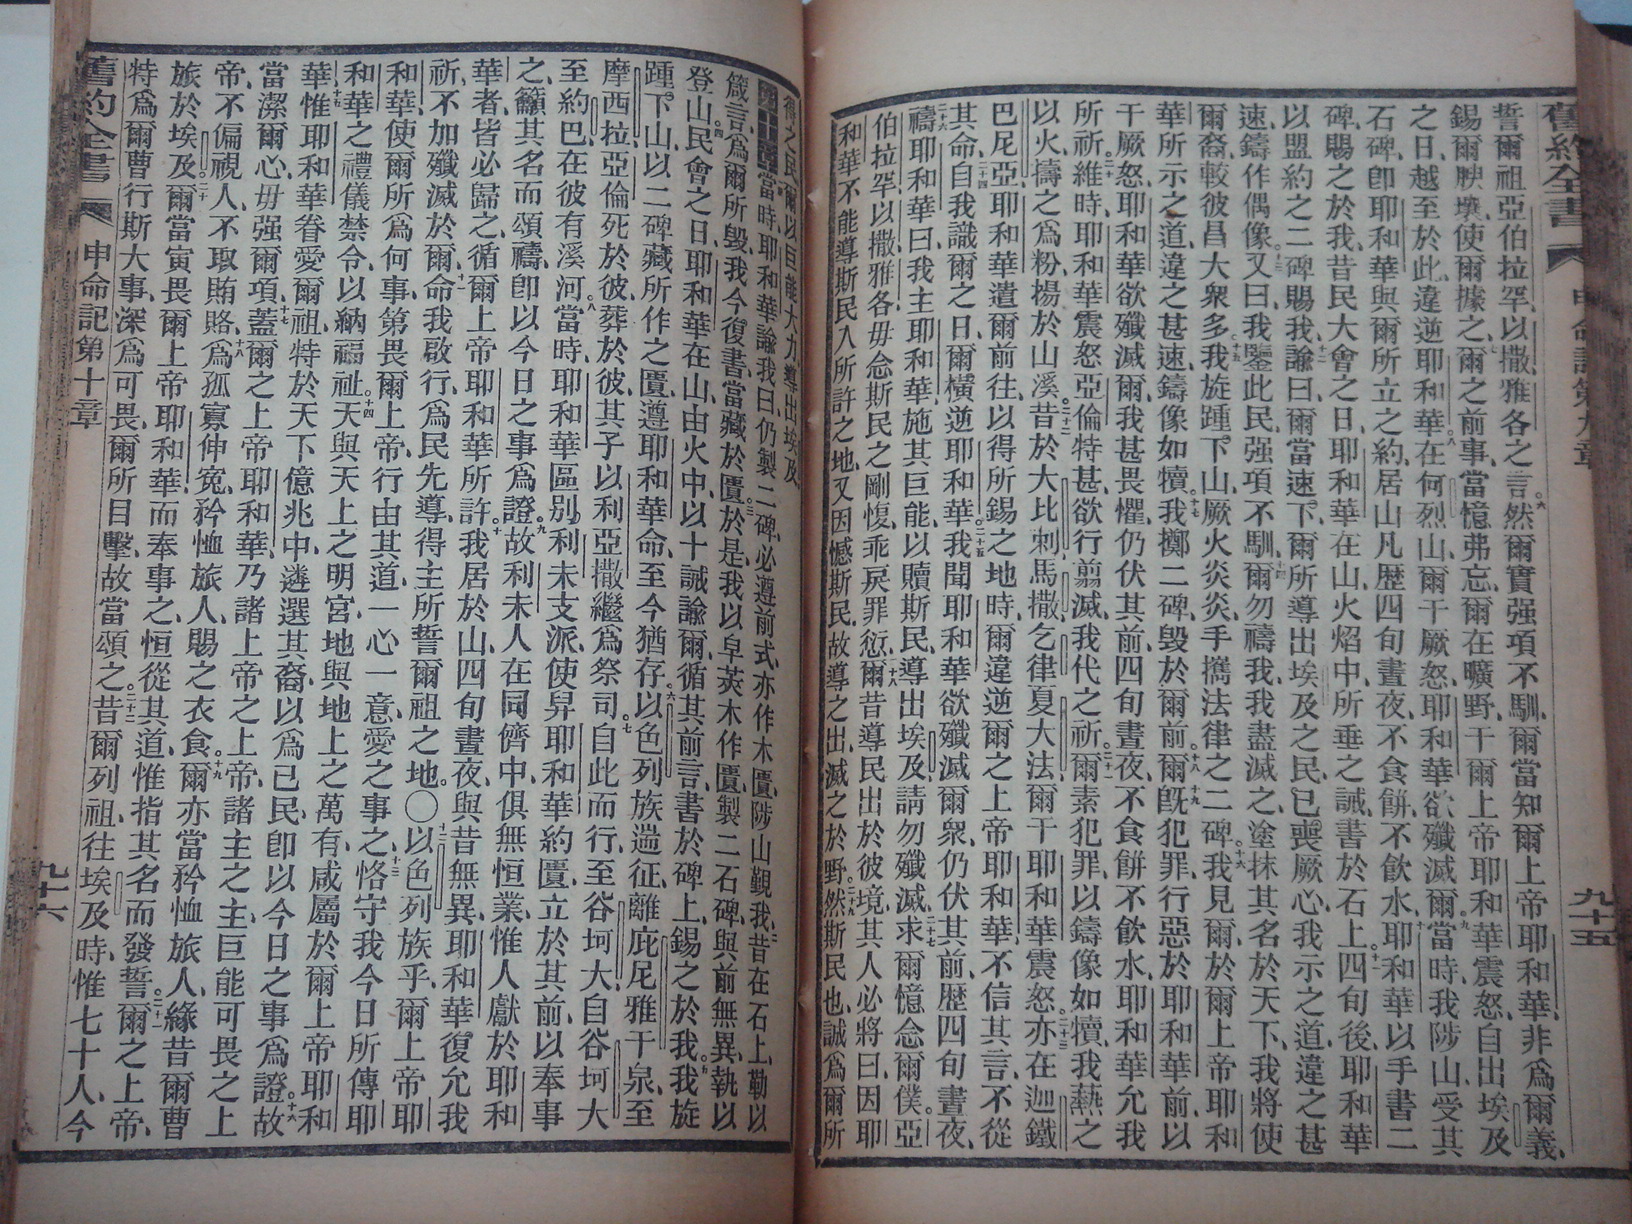 舊約全書 申命記第九章 九十五
誓爾祖亞伯拉罕、以撒、雅各之言。六然爾實强項不馴、爾當知爾上帝耶和華、非爲爾義、
錫爾腴壤、使爾據之、七爾之前事、當憶弗忘、爾在曠野、干爾上帝耶和華震怒、自出埃及
之日、越至於此、違逆耶和華。八在何烈山、爾干厥怒、耶和華欲殲滅爾。九當時我陟山、受其
石碑、卽耶和華與爾所立之約、居山凡歷四旬晝夜、不食餅、不飲水、十耶和華以手書二
碑、賜之於我、昔民大會之日、耶和華在山、火焰中、所垂之誡、書於石上。十一四旬後、耶和華
以盟約之二碑賜我、十二諭曰、爾當速下、爾所導出埃及之民、已喪厥心、我示之道、違之甚
速、鑄作偶像。十三又曰、我鑒此民、强項不馴、十四爾勿禱我、我盡滅之、塗抹其名於天下、我將使
爾裔、較彼昌大衆多。十五我旋踵下山、厥火炎炎、手攜法律之二碑。十六我見爾於爾上帝耶和
華所示之道、違之甚速、鑄像如犢。十七我擲二碑、毀於爾前。十八爾旣犯罪、行惡於耶和華前、以
干厥怒、十九耶和華欲殲滅爾、我甚畏懼、仍伏其前、四旬晝夜、不食餅、不飲水、耶和華允我
所祈、二十維時耶和華震怒亞倫特甚、欲行翦滅、我代之祈。二十一爾素犯罪、以鑄像如犢、我爇之
以火、擣之爲粉、揚於山溪。二十二昔於大比剌、馬撒、乞律夏大法、爾干耶和華震怒。二十三亦在迦鐵
巴尼亞、耶和華遣爾前往、以得所錫之地時、爾違逆爾之上帝耶和華、不信其言、不從
其命、二十四自我識爾之日、爾橫逆耶和華。二十五我聞耶和華欲殲滅爾衆、仍伏其前、歷四旬晝夜、
二十六禱耶和華曰、我主耶和華、施其巨能、以贖斯民、導出埃及、請勿殲滅、二十七求爾憶念爾僕。亞
伯拉罕、以撒、雅各、毋念斯民之剛愎、乖戾罪愆、二十八爾昔導民出於彼境、其人必將曰、因耶
和華不能導斯民入所許之地、又因憾斯民、故導之出、滅之於野。二十九然斯民也、誠爲爾所
得之民、爾以巨能大力、導出埃及、
第十章 當時耶和華諭我曰、仍製二碑、必遵前式、亦作木匱、陟山觀我、二昔在石上、勒以
箴言、爲爾所毀、我今復書、當藏於匱。三於是我以皁莢木作匱、製二石碑、與前無異、執以
登山、四民會之日、耶和華在山、由火中、以十誡諭爾、循其前言、書於碑上、錫之於我。五我旋
踵下山、以二碑藏所作之匱、遵耶和華命、至今猶存。六以色列族遄征、離庇尼雅干泉、至
摩西拉、亞倫死於彼、葬於彼、其子以利亞撒、繼爲祭司。七自此而行、至谷坷大、自谷坷大
至約巴、在彼有溪河、八當時耶和華區別利未支派、使舁耶和華約匱、立於其前、以奉事
之、籲其名而頌禱、卽以今日之事爲證。九故利未人在同儕中、俱無恒業、惟人獻於耶和
華者、皆必歸之、循爾上帝耶和華所許。十我居於山、四旬晝夜、與昔無異、耶和華復允我
祈、不加殲滅於爾、十一命我啟行、爲民先導、得主所誓爾祖之地。〇十二以色列族乎、爾上帝耶
和華、使爾所爲何事、第畏爾上帝、行由其道、一心一意、愛之事之、十三恪守我今日所傳耶
和華之禮儀禁令、以納福祉。十四天與天上之明宮、地與地上之萬有、咸屬於爾上帝耶和
華、十五惟耶和華眷愛爾祖、特於天下億兆中、遴選其裔、以爲己民、卽以今日之事爲證。十六故
當潔爾心、毋强爾項、十七蓋爾之上帝耶和華、乃諸上帝之上帝、諸主之主、巨能可畏之上
帝、不偏視人、不取賄賂、十八爲孤寡伸冤、矜恤旅人、賜之衣食。十九爾亦當矜恤旅人、緣昔爾曹
旅於埃及、二十爾當寅畏爾上帝耶和華而奉事之、恒從其道、惟指其名而發誓。二十一爾之上帝、
特爲爾曹行斯大事、深爲可畏、爾所目擊、故當頌之。二十二昔爾列祖往埃及時、惟七十人、今
舊約全書 申命記第十章 九十六